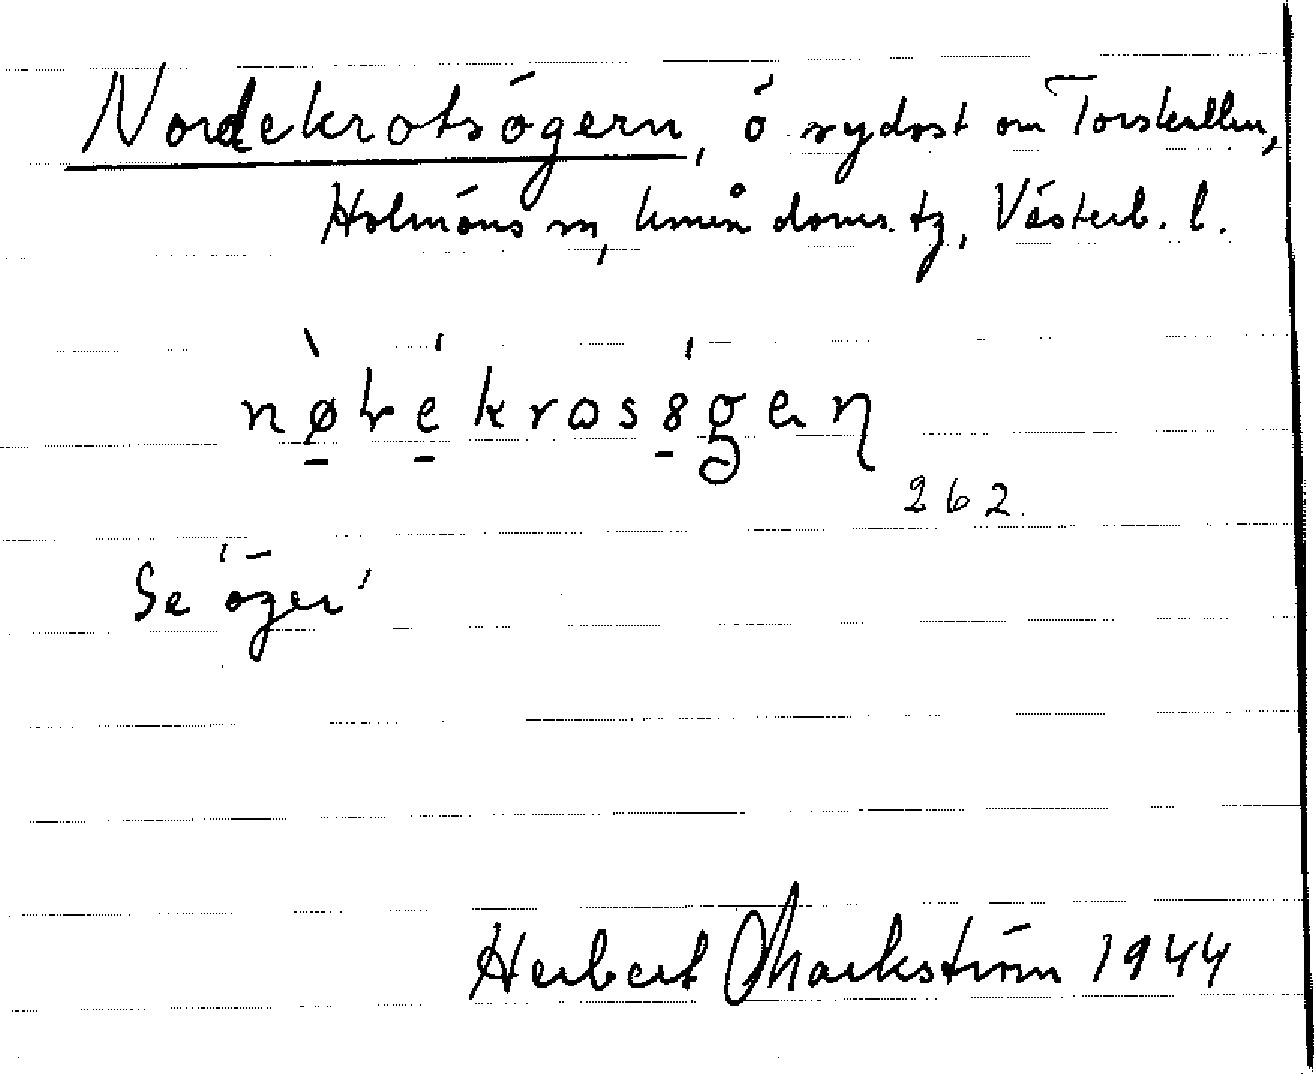 Nordekrotsögern, ö sydost om Torskallen,
Holmöns sn, Umeå doms. tg, Västerb. l.
nø̱re̱krɷs8̱gen
262.
Se 'öger'
Herbert Markström 1944